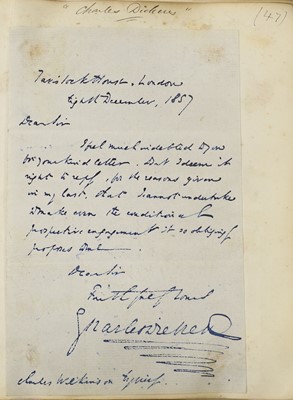 "Charles Dickens"
(47)
Tavistock House, London
Eighth December, 1857
Dear Sir
I feel much indebted to you
for your kind letter. But I deem it
right to reply, for the reasons given
in my last, that I cannot undertake
to make even the conditional
prospective engagement it so obligingly
proposes to me.
Dear Sir
Faithfully Yours
Charles Dickens
Charles Wilkinson Esquire.